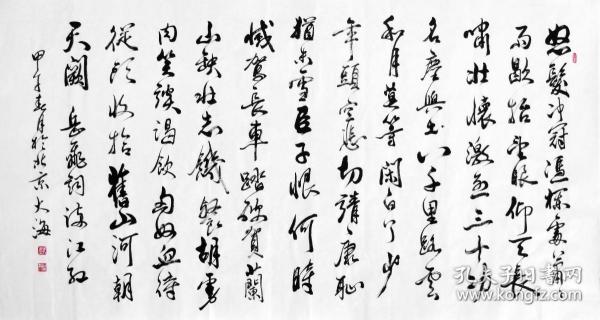 怒髮冲冠凭栏處萧
雨歇抬望眼仰天長
嘯壯懷激烈三十功
名塵與土八千里路雲
和月莫等闲白了少
年頭空悲切靖康耻
猶未雪臣子恨何時
憾駕長車踏破賀蘭
山缺壯志飢餐胡虜
肉笑談渴飲匈奴血待
從頭收拾舊山河朝
天闕 岳飛詞满江红
甲午春月於北京大海
孔夫子旧书网
www.kongfz.com